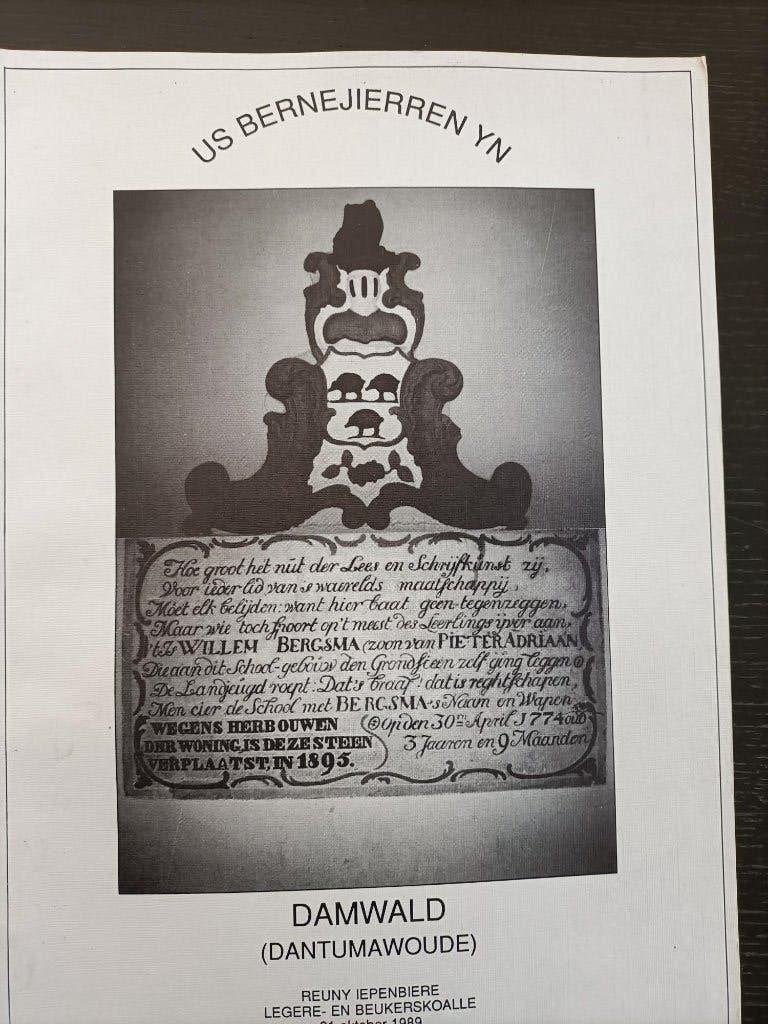 US BERNEJIERREN YN
Hoe groot het nut der Lees en Schrijfkunst zij,
Voor ieder lid van 's waerelds maatschappij,
Moet elk belijden: want hier baat geen tegenzeggen,
Maar wie toch spoort op't meest des Leerlings ijvir aan,
't Is WILLEM BERGSMA (zoon van PIETER ADRIAAN
Die aan dit School-gebouw den Grondsteen zelf ging leggen
De Landjeugd roept: Dat's braaf! dat is reghtschapen,
Men cier de School met BERGSMA-s Naam en Wapen
WEGENS HERBOUWEN
DER WONING, IS DEZE STEEN
VERPLAATST, IN 1895.
Op den 30en April 1774 oud
3 Jaaren en 9 Maanden
DAMWALD
(DANTUMAWOUDE)
REUNY IEPENBIERE
LEGERE- EN BEUKERSKOALLE
oktober 1989